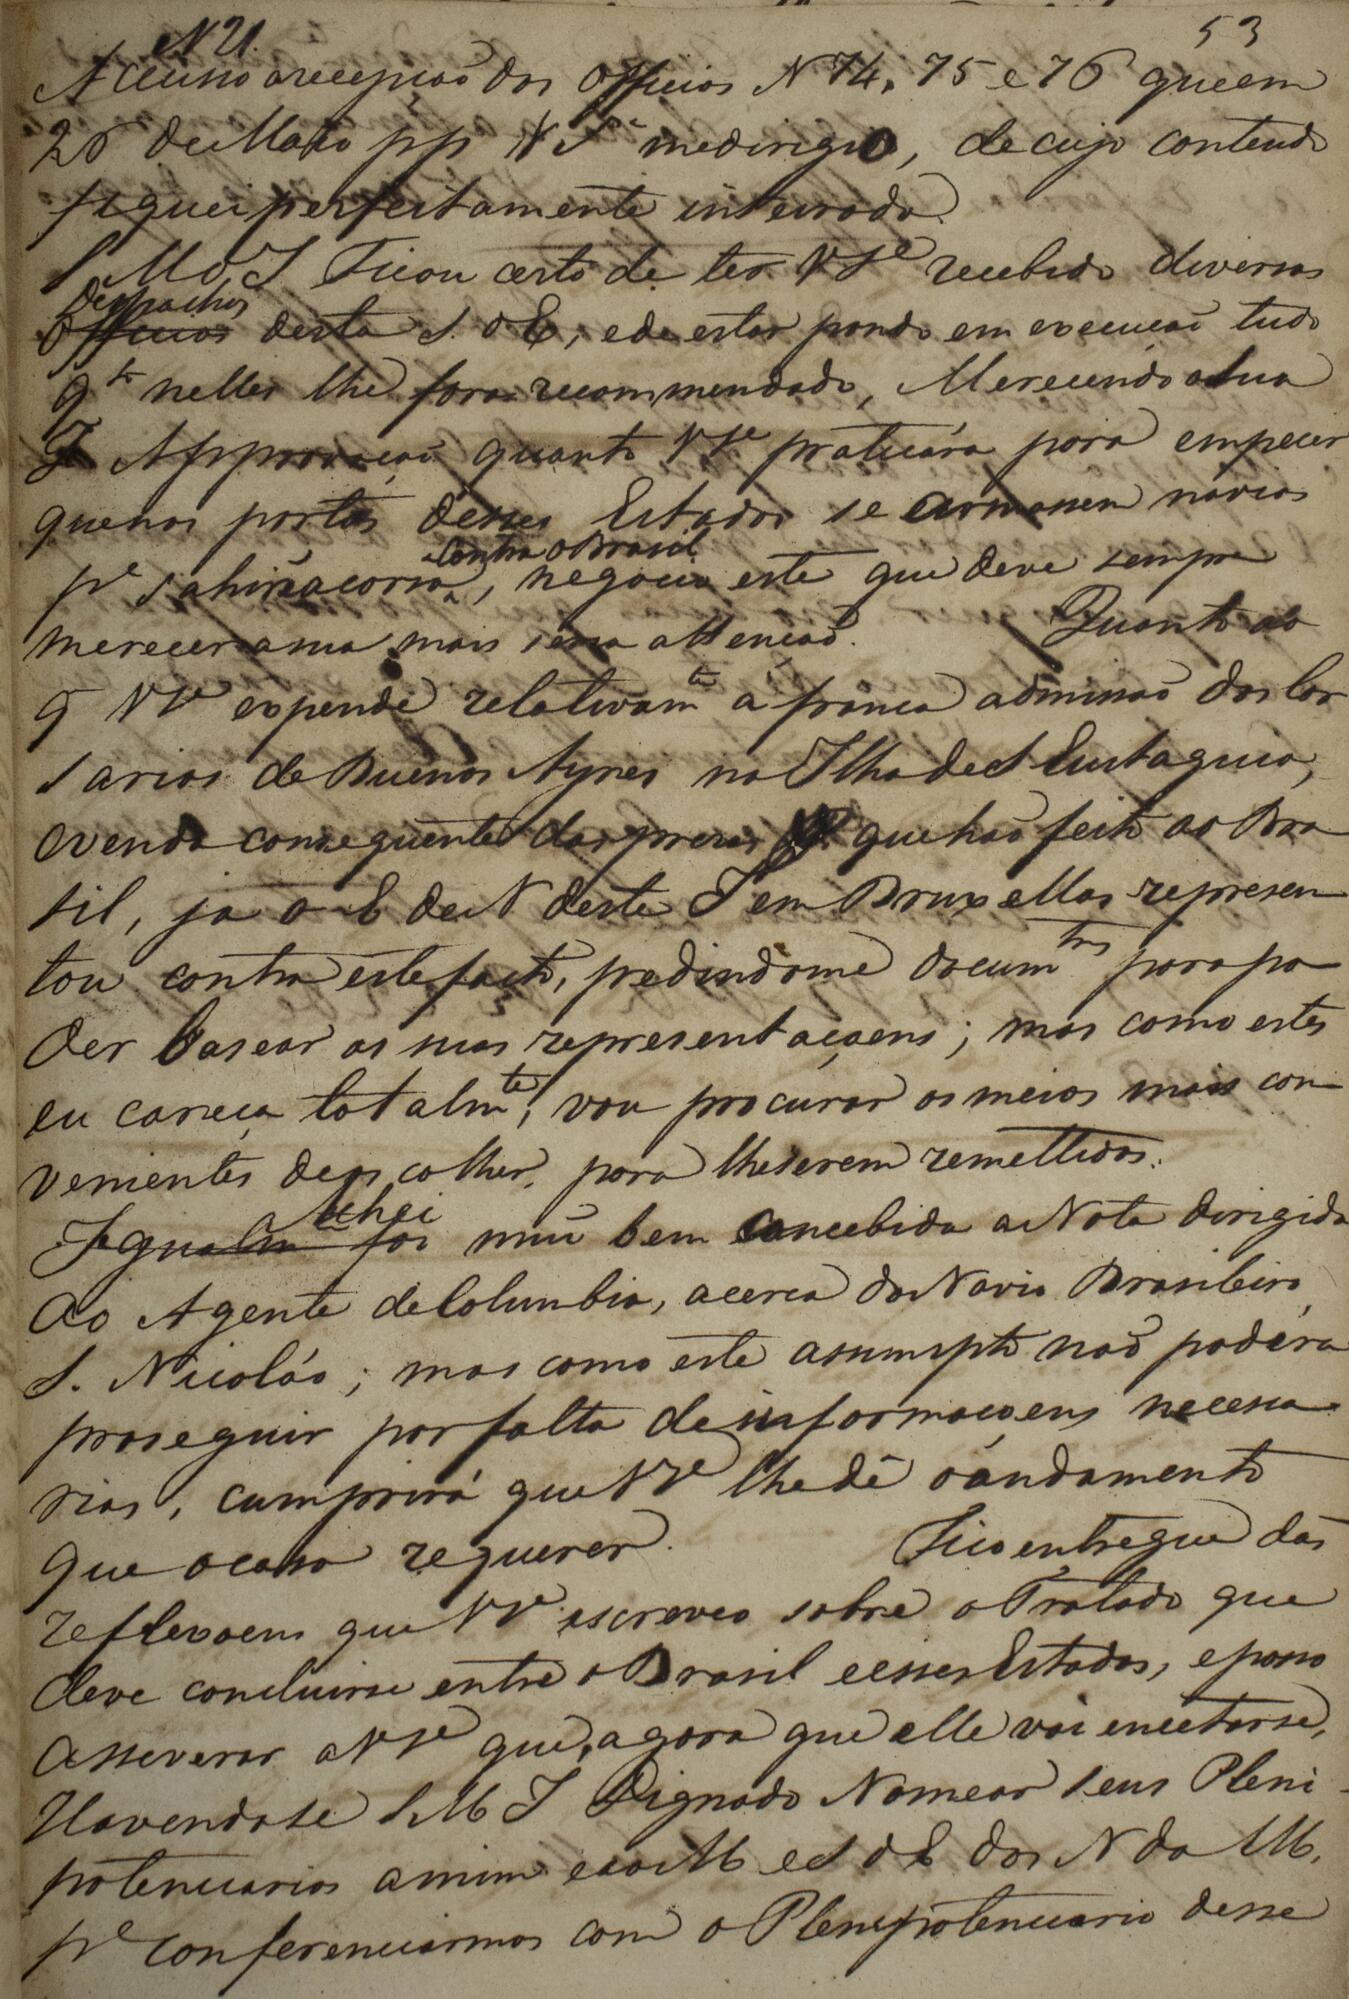 N 21. 53
Accuso a recepção dos Officios N 74, 75 e 76 que em
26 de Maio pp V Sª me dirigio, de cujo contendo
fiquei perfeitamente inteirado.
S M o I Ficou certo de ter VSª recebido diversos
Despachos
Officios desta S. d E, e de estar pondo em execução tudo
qto nelles lhe fora recommendado, Merecendo a Sua
I Approvação quanto VSª praticára para empecer
que nos portos desses Estados se armassem navios
contra o Brasil
pª sahir a corso, negocio este que deve sempre
merecer a sua mais seria attenção. Quanto ao
q VSª expende relativamte á franca admissão dos Cor
sarios de Buenos Ayres na Ilha de S Eustaquio,
e venda consequente das presas que hão feito ao Bra
sil, ja o E de N deste I em Bruxellas represen
tou contra este facto, pedindome documtos para po
der basear as suas representaçoens; mas como estes
eu careça totalmte, vou procurar os meios mais con
venientes de os colher, para lhe serem remettidos.
achei
Igualmte foi mui bem concebida a Nota dirigida
Ao Agente de Columbia, acerca do Navio Brasileiro
S. Nicoláo; mas como este assumpto não poderá
proseguir por falta de informaçoens necessa
rias, cumprirá que VSª lhe dê o andamento
que o caso requerer. Fico entregue das
reflexoens que VSª escreveo sobre o Tratado que
deve concluirse entre o Brasil e esses Estados, e posso
asseverar a VSª que, agora que elle vai encetarse,
Havendose S M I Dignado Nomear seus Pleni
potenciarios a mim e ao M e S d E dos N da M,
pª conferenciarmos com o Plenipotenciario desse